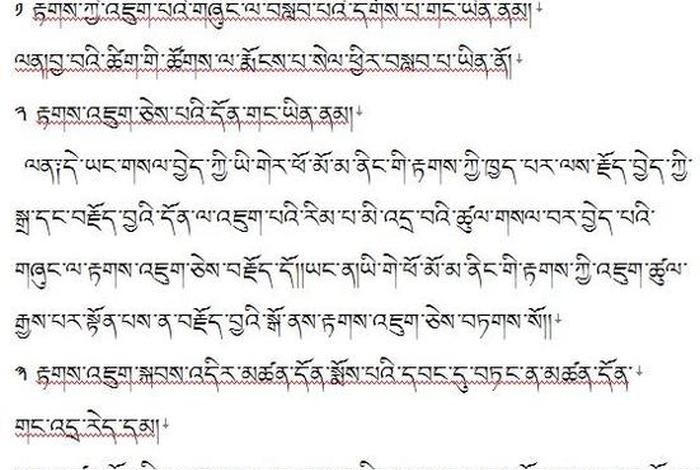 ༡ རྟགས་ཀྱི་འཇུག་པའི་གཞུང་ལ་བསླབ་པའི་དགོས་པ་གང་ཡིན་ནམ།
ལན།བྱ་བའི་ཚིག་གི་ཚོགས་ལ་རྨོངས་པ་སེལ་ཕྱིར་བསླབ་པ་ཡིན་ནོ།
༢ རྟགས་འཇུག་ཅེས་པའི་དོན་གང་ཡིན་ནམ།
ལན༑དེ་ཡང་གསལ་བྱེད་ཀྱི་ཡི་གེར་ཕོ་མོ་མ་ནིང་གི་རྟགས་ཀྱི་ཁྱད་པར་ལས་རྗོད་བྱེད་ཀྱི་
སྒྲ་དང་བརྗོད་བྱའི་དོན་ལ་འཇུག་པའི་རིམ་པ་མི་འདྲ་བའི་ཚུལ་གསལ་བར་བྱེད་པའི་
གཞུང་ལ་རྟགས་འཇུག་ཅེས་བརྗོད་དོ།།ཡང་ན།ཡི་གེ་ཕོ་མོ་མ་ནིང་གི་རྟགས་ཀྱི་འཇུག་ཚུལ་
རྒྱས་པར་སྟོན་པས་ན་བརྗོད་བྱའི་སྒོ་ནས་རྟགས་འཇུག་ཅེས་བཏགས་སོ།།
༣ རྟགས་འཇུག་སྐབས་འདིར་མཚན་དོན་སྨོས་པའི་དབང་དུ་བཏང་ན་མཚན་དོན་
གང་འདྲ་རེད་དམ།